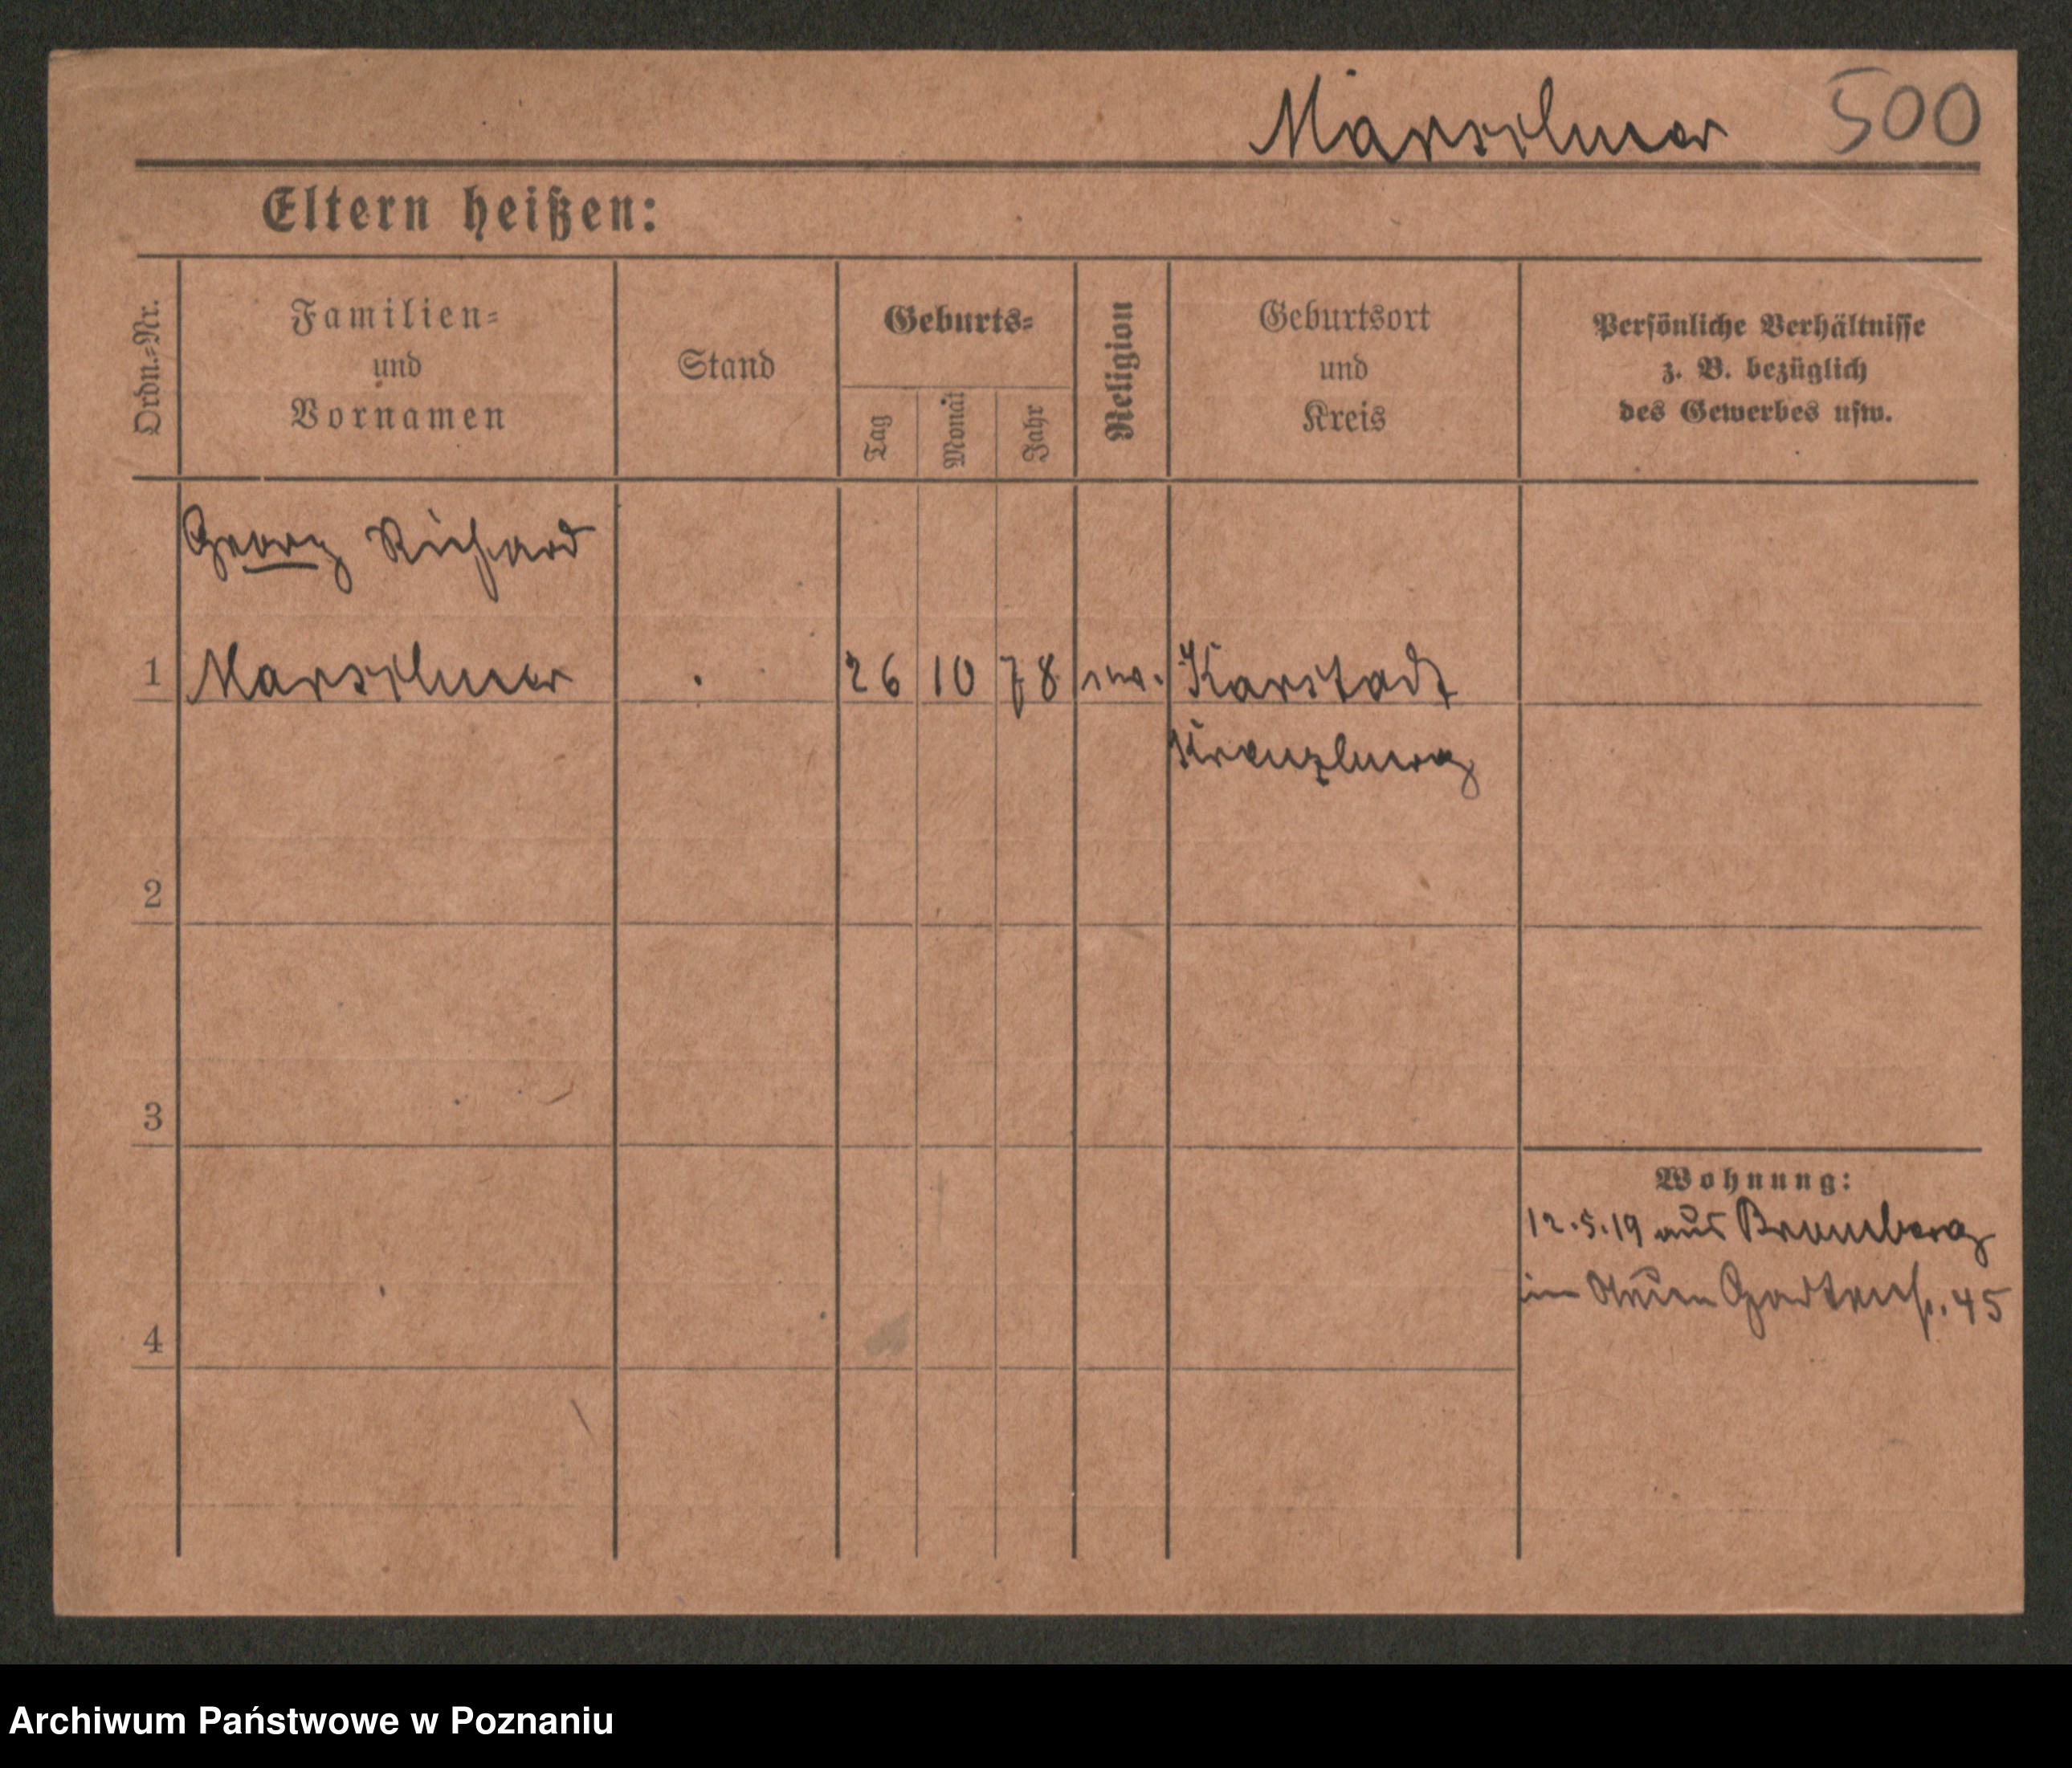 500
Eltern heißen:
Ordn.=Nr.
Familien=
und
Vornamen
Stand
Geburts=
Tag
Monat
Jahr
Religion
Geburtsort
und
Kreis
Persönliche Verhältnisse
z. B. bezüglich
des Gewerbes usw.
Georg Richard
1 26 10 78 ev. Karstadt
2
3
Wohnung:
12.5.19 aus Bromberg
in 45
4
Archiwum Państwowe w Poznaniu